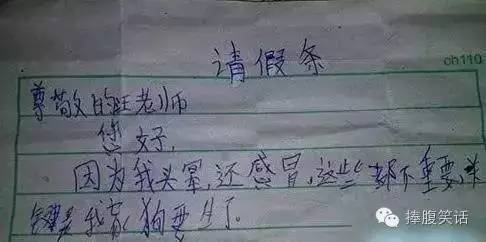 请假条
ch110
尊敬的旺老师
您好,
因为我头晕,还感冒,这些都不重要,关
键是我家狗要生了。
捧腹笑话